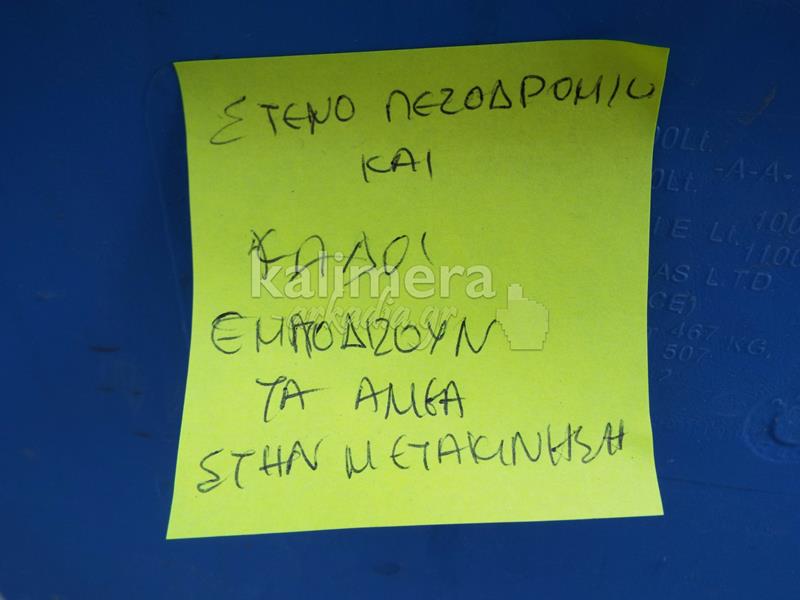 ΣΤΕΝΟ ΠΕΖΟΔΡΟΜΙΟ
ΚΑΙ
ΚΑΔΟΙ
ΕΜΠΟΔΙΖΟΥΝ
ΤΑ ΑΜΕΑ
ΣΤΗΝ ΜΕΤΑΚΙΝΗΣΗ
kalimera
arkadia.gr
0Lt.
0Lt. -A-A-
E Lt. 1100
AS L.T.D
CE)
467 KG.
507